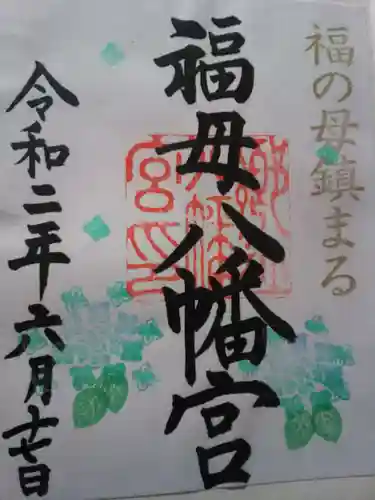 福の母鎮まる
福母八幡宮
令和二年六月十七日